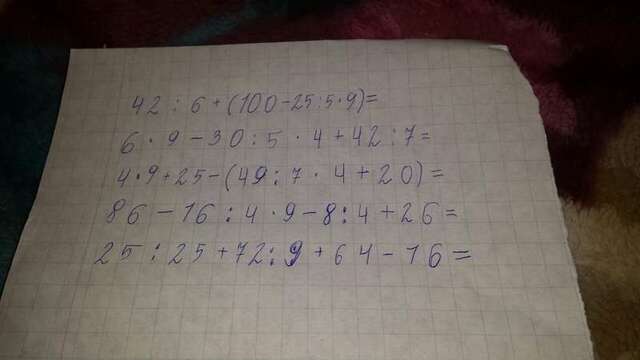 42 : 6 + (100 - 25 : 5 · 9) =
6 · 9 - 30 : 5 · 4 + 42 : 7 =
4 · 9 + 25 - (49 : 7 · 4 + 20) =
86 - 16 : 4 · 9 - 8 : 4 + 26 =
25 : 25 + 72 : 9 + 64 - 16 =